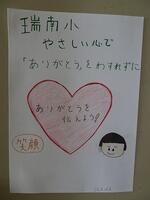 瑞南小
やさしい心で
「ありがとう」をわすれずに
ありがとうを
伝えよう!
笑顔